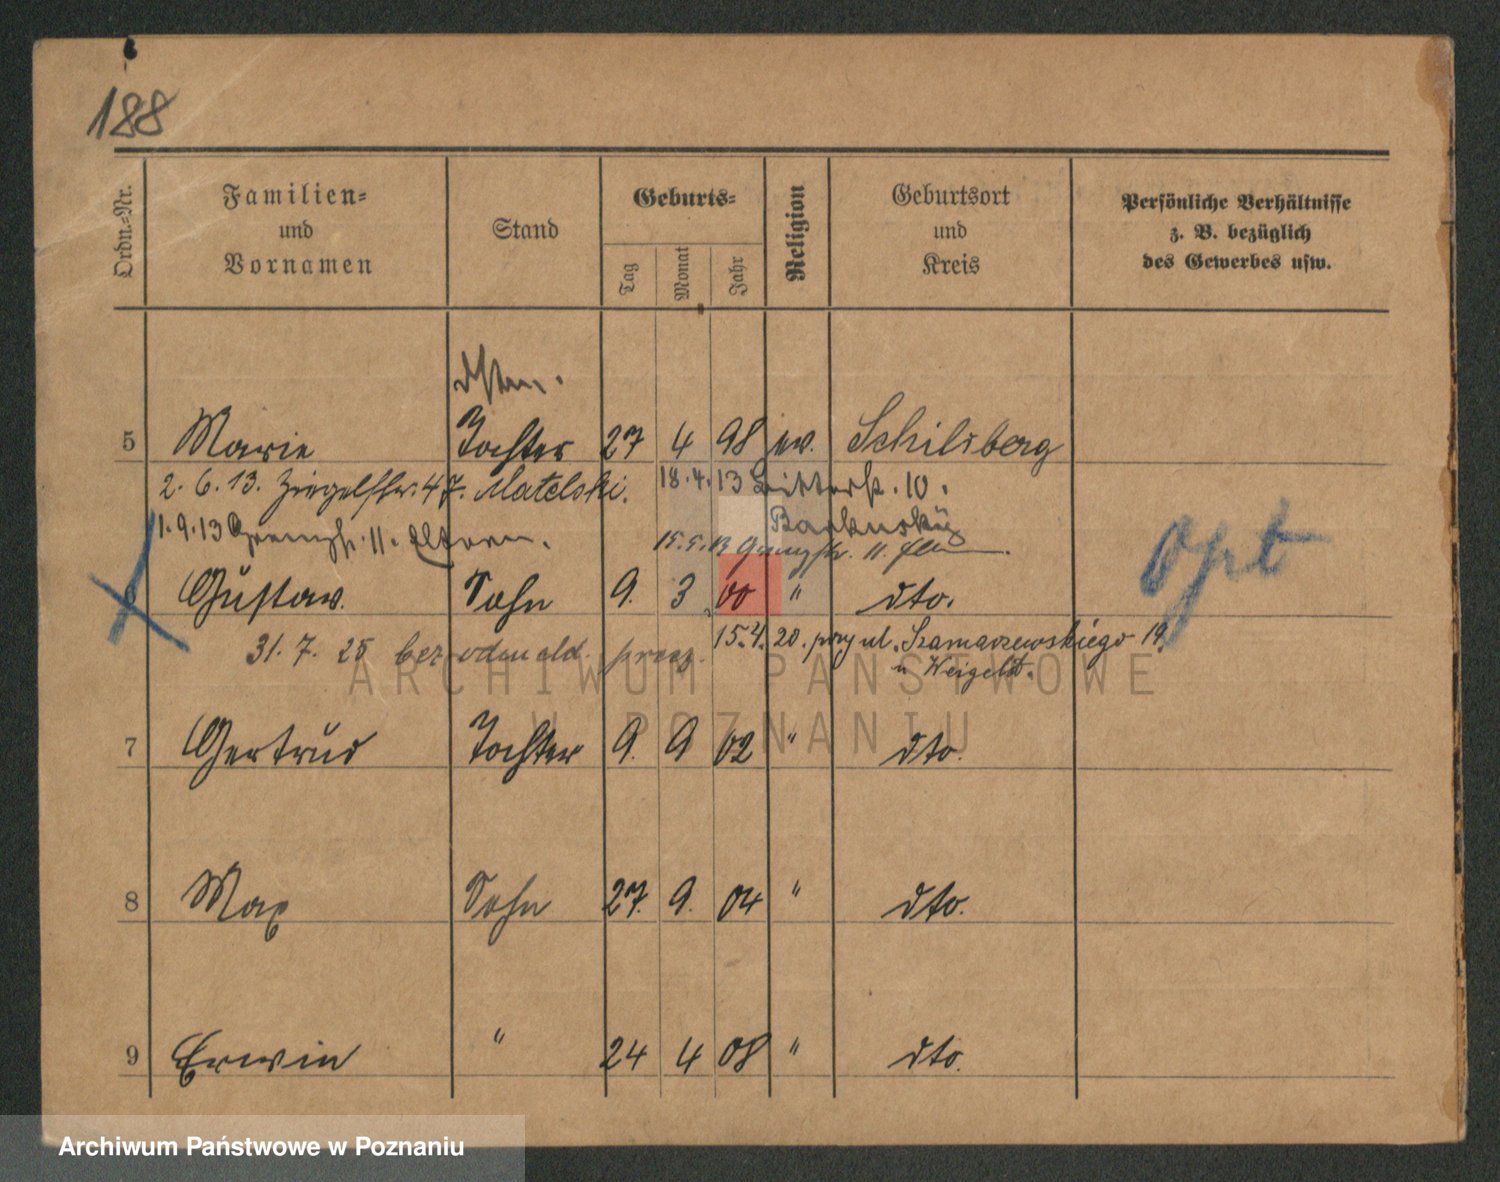 188
Ordn.-Nr. Familien- und Vornamen Stand Geburts- Tag Monat Jahr Religion Geburtsort und Kreis Persönliche Verhältnisse z. B. bezüglich des Gewerbes usw.
5 Marie Tochter 27 4 98 ev. Schildberg
2. 6. 13. Ziegelstr. 47. Matelski. 18. 4. 13 Ritterstr. 10.
1. 9. 13 11. Eltern.
15. 5. 13 11.
6 Gustav Sohn 9. 3 00 " dto. Opt
31. 7. 25 bez odmeld. 15. 4. 20. przy ul. Szamarzewskiego 19
u Weigelt.
7 Gertrud Tochter 9. 9 02 " dto.
8 Max Sohn 27. 9. 04 " dto.
9 Erwin " 24 4 08 " dto.
ARCHIWUM PAŃSTWOWE
W POZNANIU
Archiwum Państwowe w Poznaniu